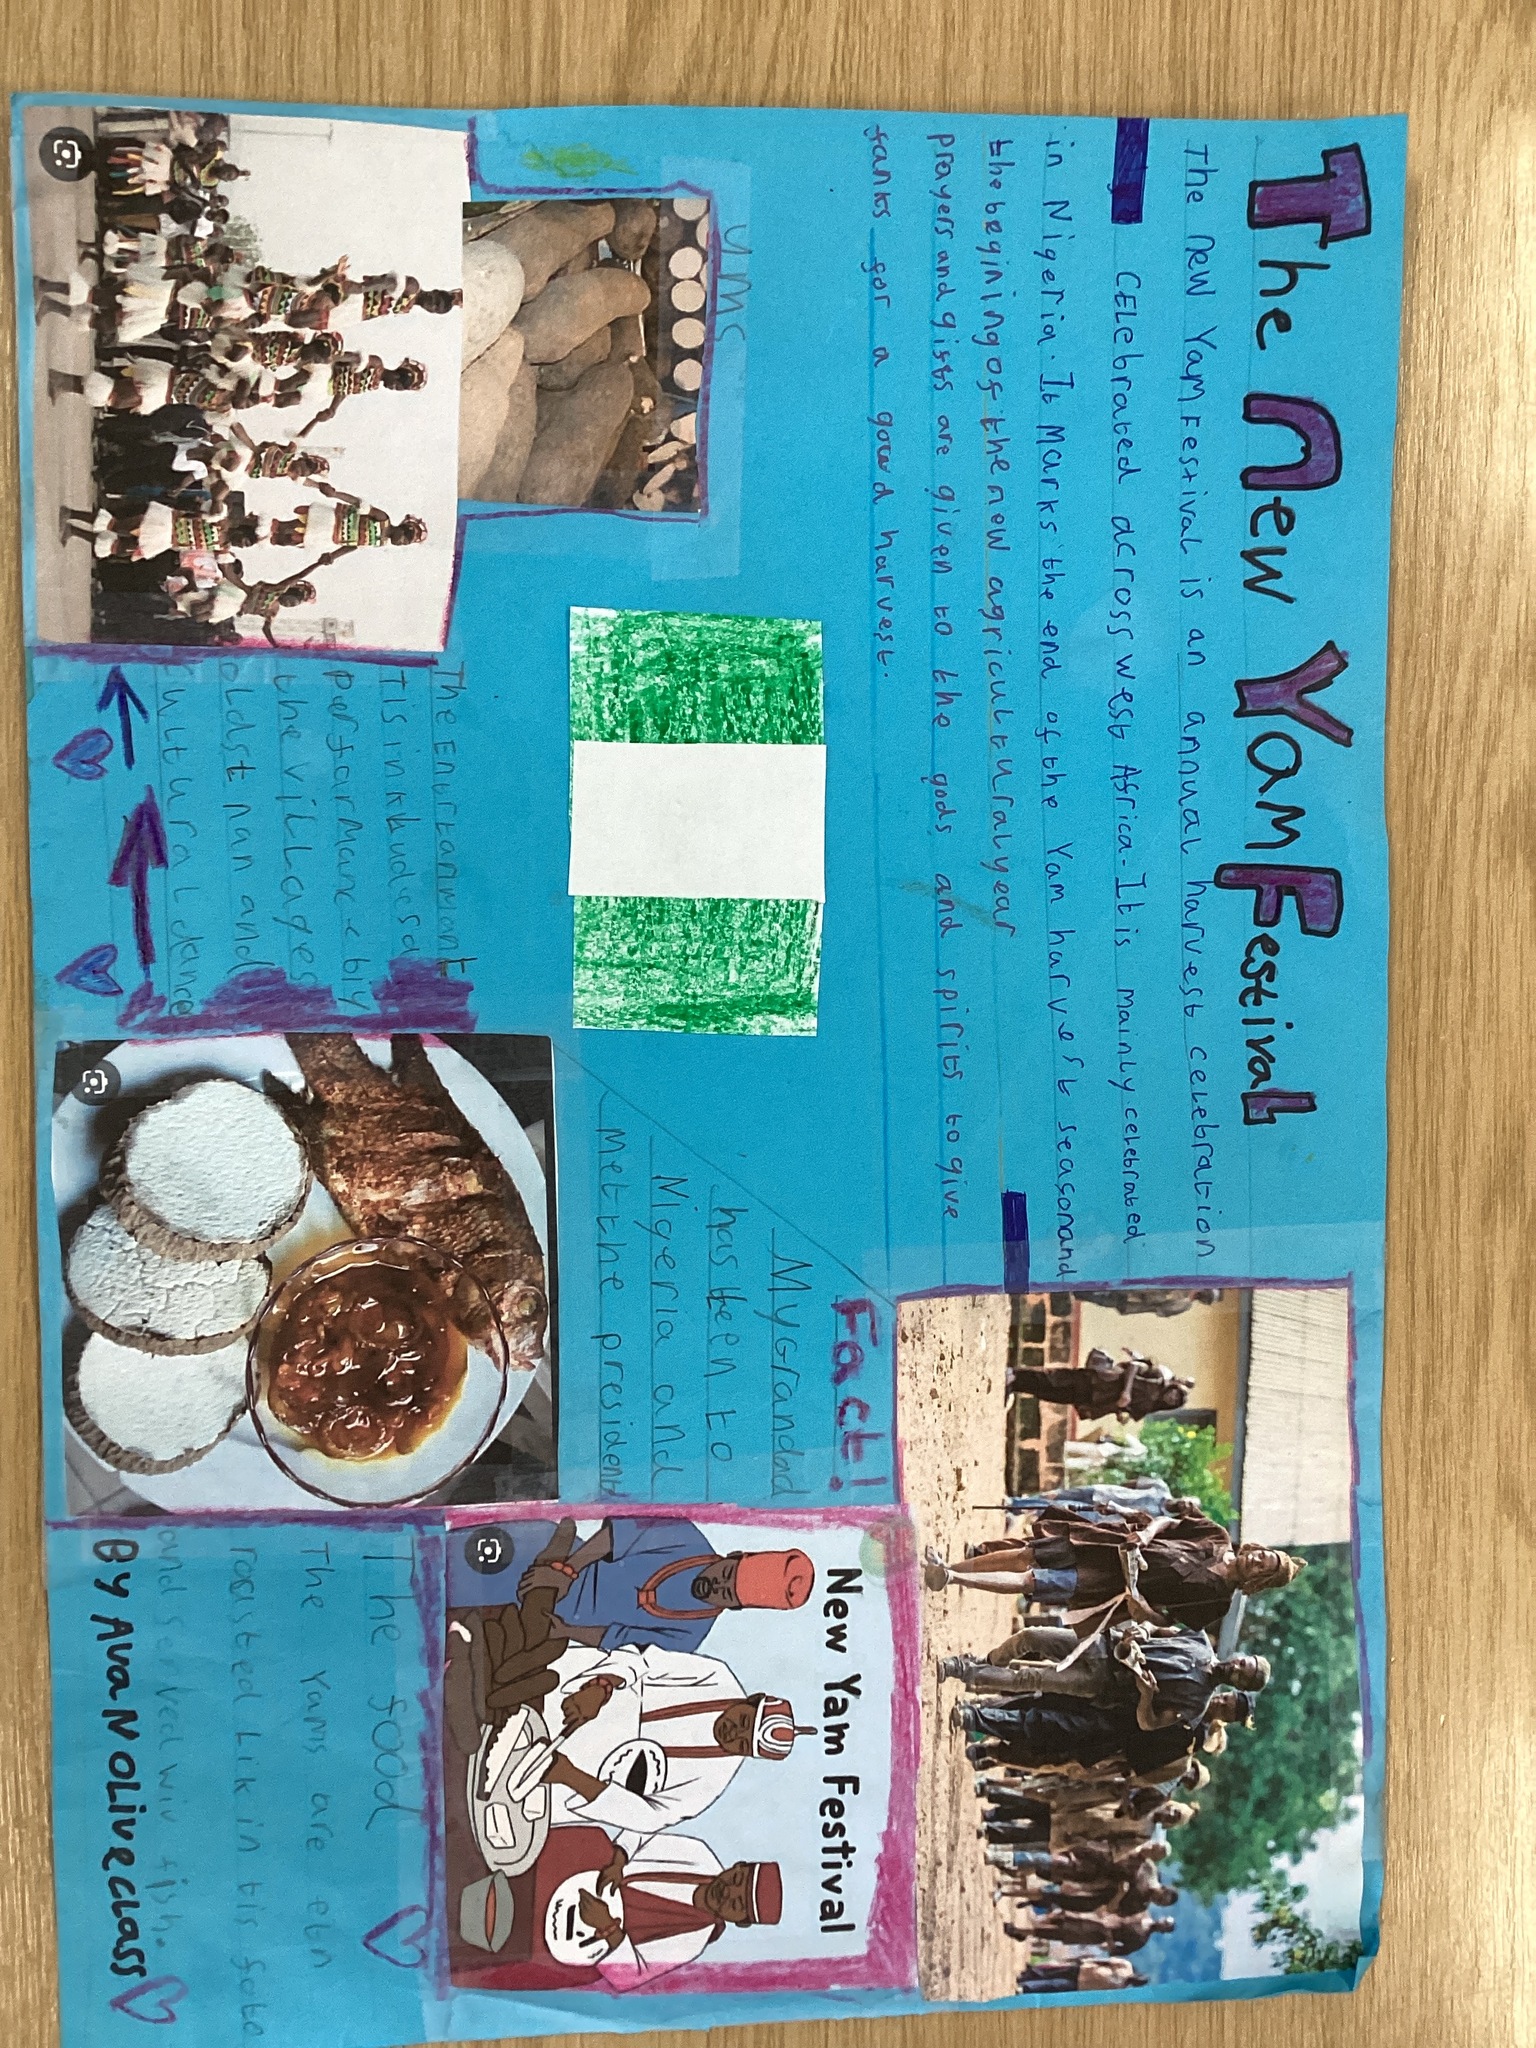 The New Yam Festival
The new Yam Festival is an annual harvest celebration
CELebrated across west Africa. It is mainly celebrated
in Nigeria. It Marks the end of the Yam harvest seasonand
the begining of the new agricultural year
prayers and gifts are given to the gods and spirits to give
fanks for a goud harvest.
yms
Fact!
My Grandad
has been to
Nigeria and
Met the president
The Enurtanmant
Tis inkludesa
perfarmance biy
the villages
oldst man and
cultural dance
New Yam Festival
The food
The Yams are etn
roasted Lik in tis foto
and serked wiv fish.
By AVA N OLive class